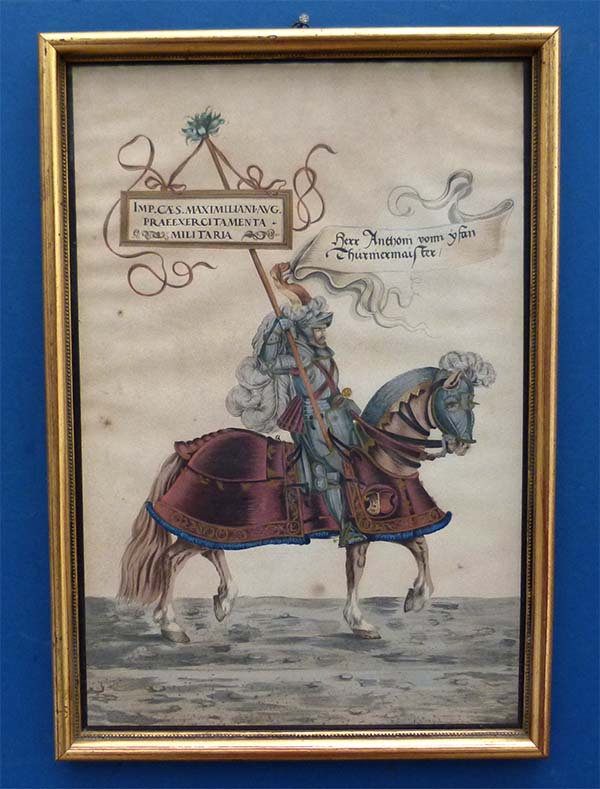 IMP. CÆS. MAXIMILIANI·AVG.
PRAEEXERCITAMENTA ·
MILITARIA
Herr Anthoni vonn yfan
Thurnermaister /